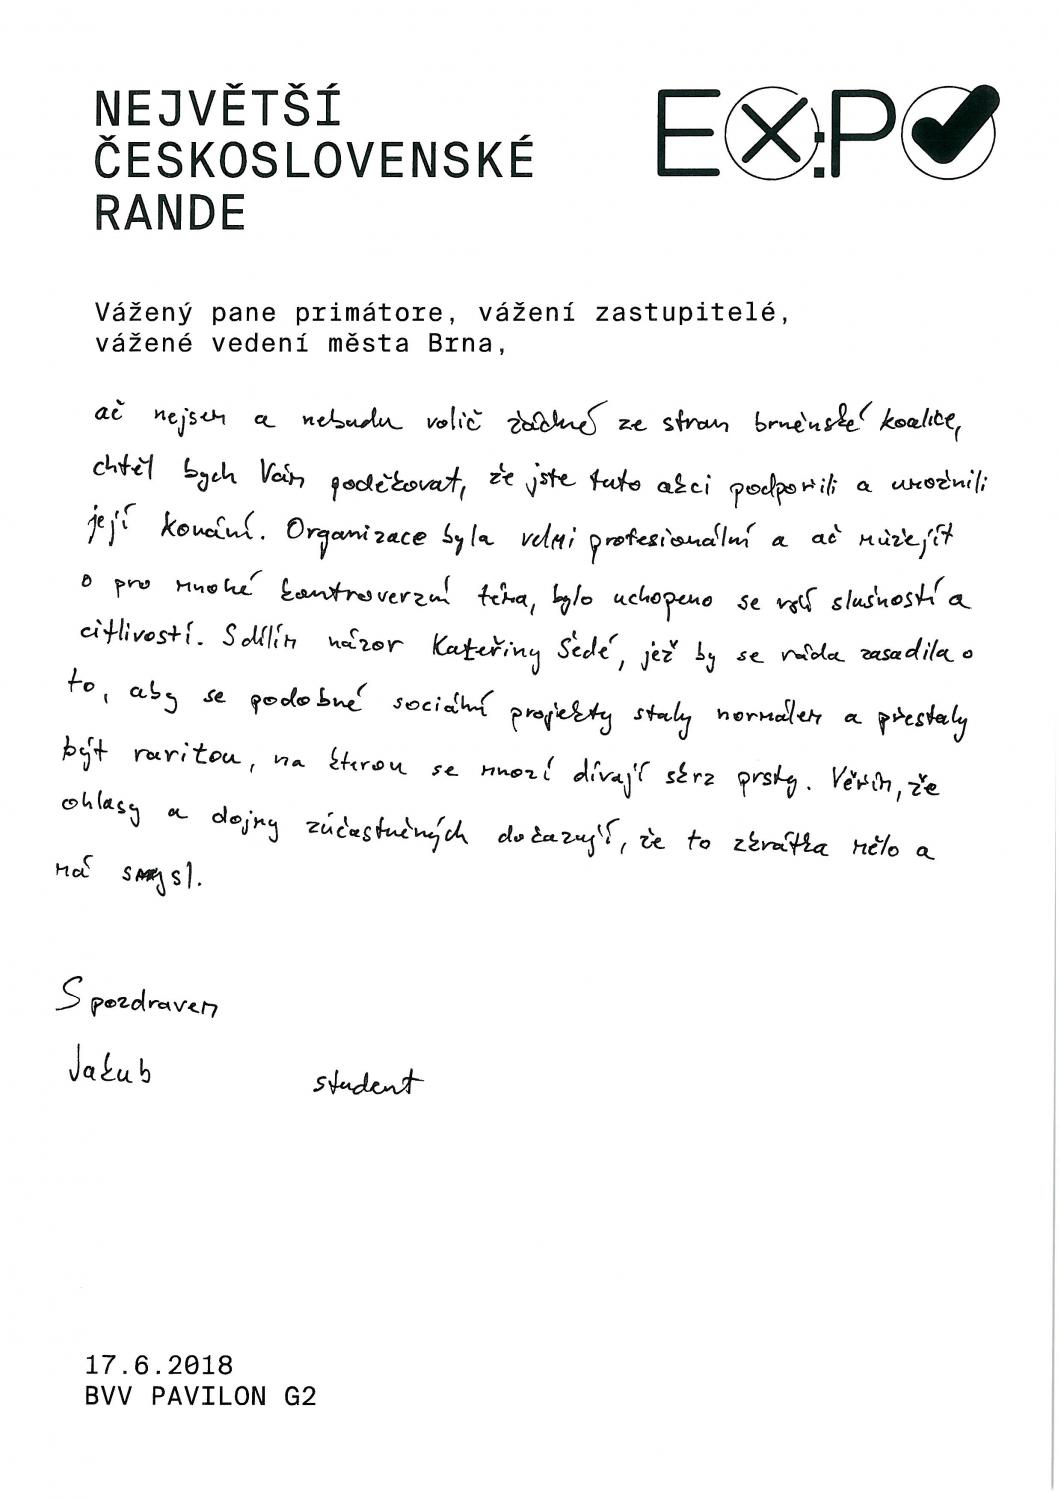 NEJVĚTŠÍ
ČESKOSLOVENSKÉ
RANDE
EX:PO
Vážený pane primátore, vážení zastupitelé,
vážené vedení města Brna,
ač nejsem a nebudu volič žádné ze stran brněnské koalice,
chtěl bych Vám poděkovat, že jste tuto akci podpořili a umožnili
její konání. Organizace byla velmi profesionální a ač může jít
o pro mnohé kontroverzní téma, bylo uchopeno se vší slušností a
citlivostí. Sdílím názor Kateřiny Šedé, jež by se ráda zasadila o
to, aby se podobné sociální projekty staly normálem a přestaly
být raritou, na kterou se mnozí dívají skrz prsty. Věřím, že
ohlasy a dojmy zúčastněných dokazují, že to zkrátka mělo a
má smysl.
S pozdravem
Jakub student
17.6.2018
BVV PAVILON G2